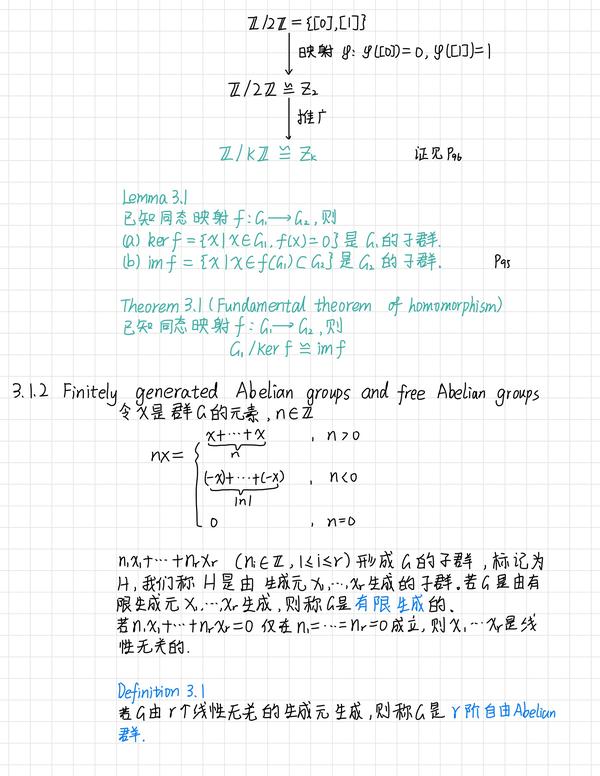 ℤ/2ℤ = {[0],[1]}
映射 φ: φ([0])=0, φ([1])=1
ℤ/2ℤ ≅ Z₂
推广
ℤ/kℤ ≅ Z_k 证见 P₉₆
Lemma 3.1
已知同态映射 f: G₁→G₂, 则
(a) ker f = {x | x∈G₁, f(x)=0} 是 G₁ 的子群.
(b) im f = {x | x∈f(G₁)⊂G₂} 是 G₂ 的子群. P₉₅
Theorem 3.1 (Fundamental theorem of homomorphism)
已知同态映射 f: G₁→G₂, 则
G₁/ker f ≅ im f
3.1.2 Finitely generated Abelian groups and free Abelian groups
令 x 是群 G 的元素, n∈ℤ
x+⋯+x , n>0
n
nx =
(-x)+⋯+(-x) , n<0
|n|
0 , n=0
n₁x₁+⋯+nᵣxᵣ (nᵢ∈ℤ, 1≤i≤r) 形成 G 的子群, 标记为
H, 我们称 H 是由 生成元 x₁,⋯,xᵣ 生成的子群. 若 G 是由有
限生成元 x₁,⋯,xᵣ 生成, 则称 G 是有限生成的、
若 n₁x₁+⋯+nᵣxᵣ=0 仅在 n₁=⋯=nᵣ=0 成立, 则 x₁,⋯xᵣ 是线
性无关的.
Definition 3.1
若 G 由 r 个线性无关的生成元生成, 则称 G 是 r 阶自由Abelian
群.